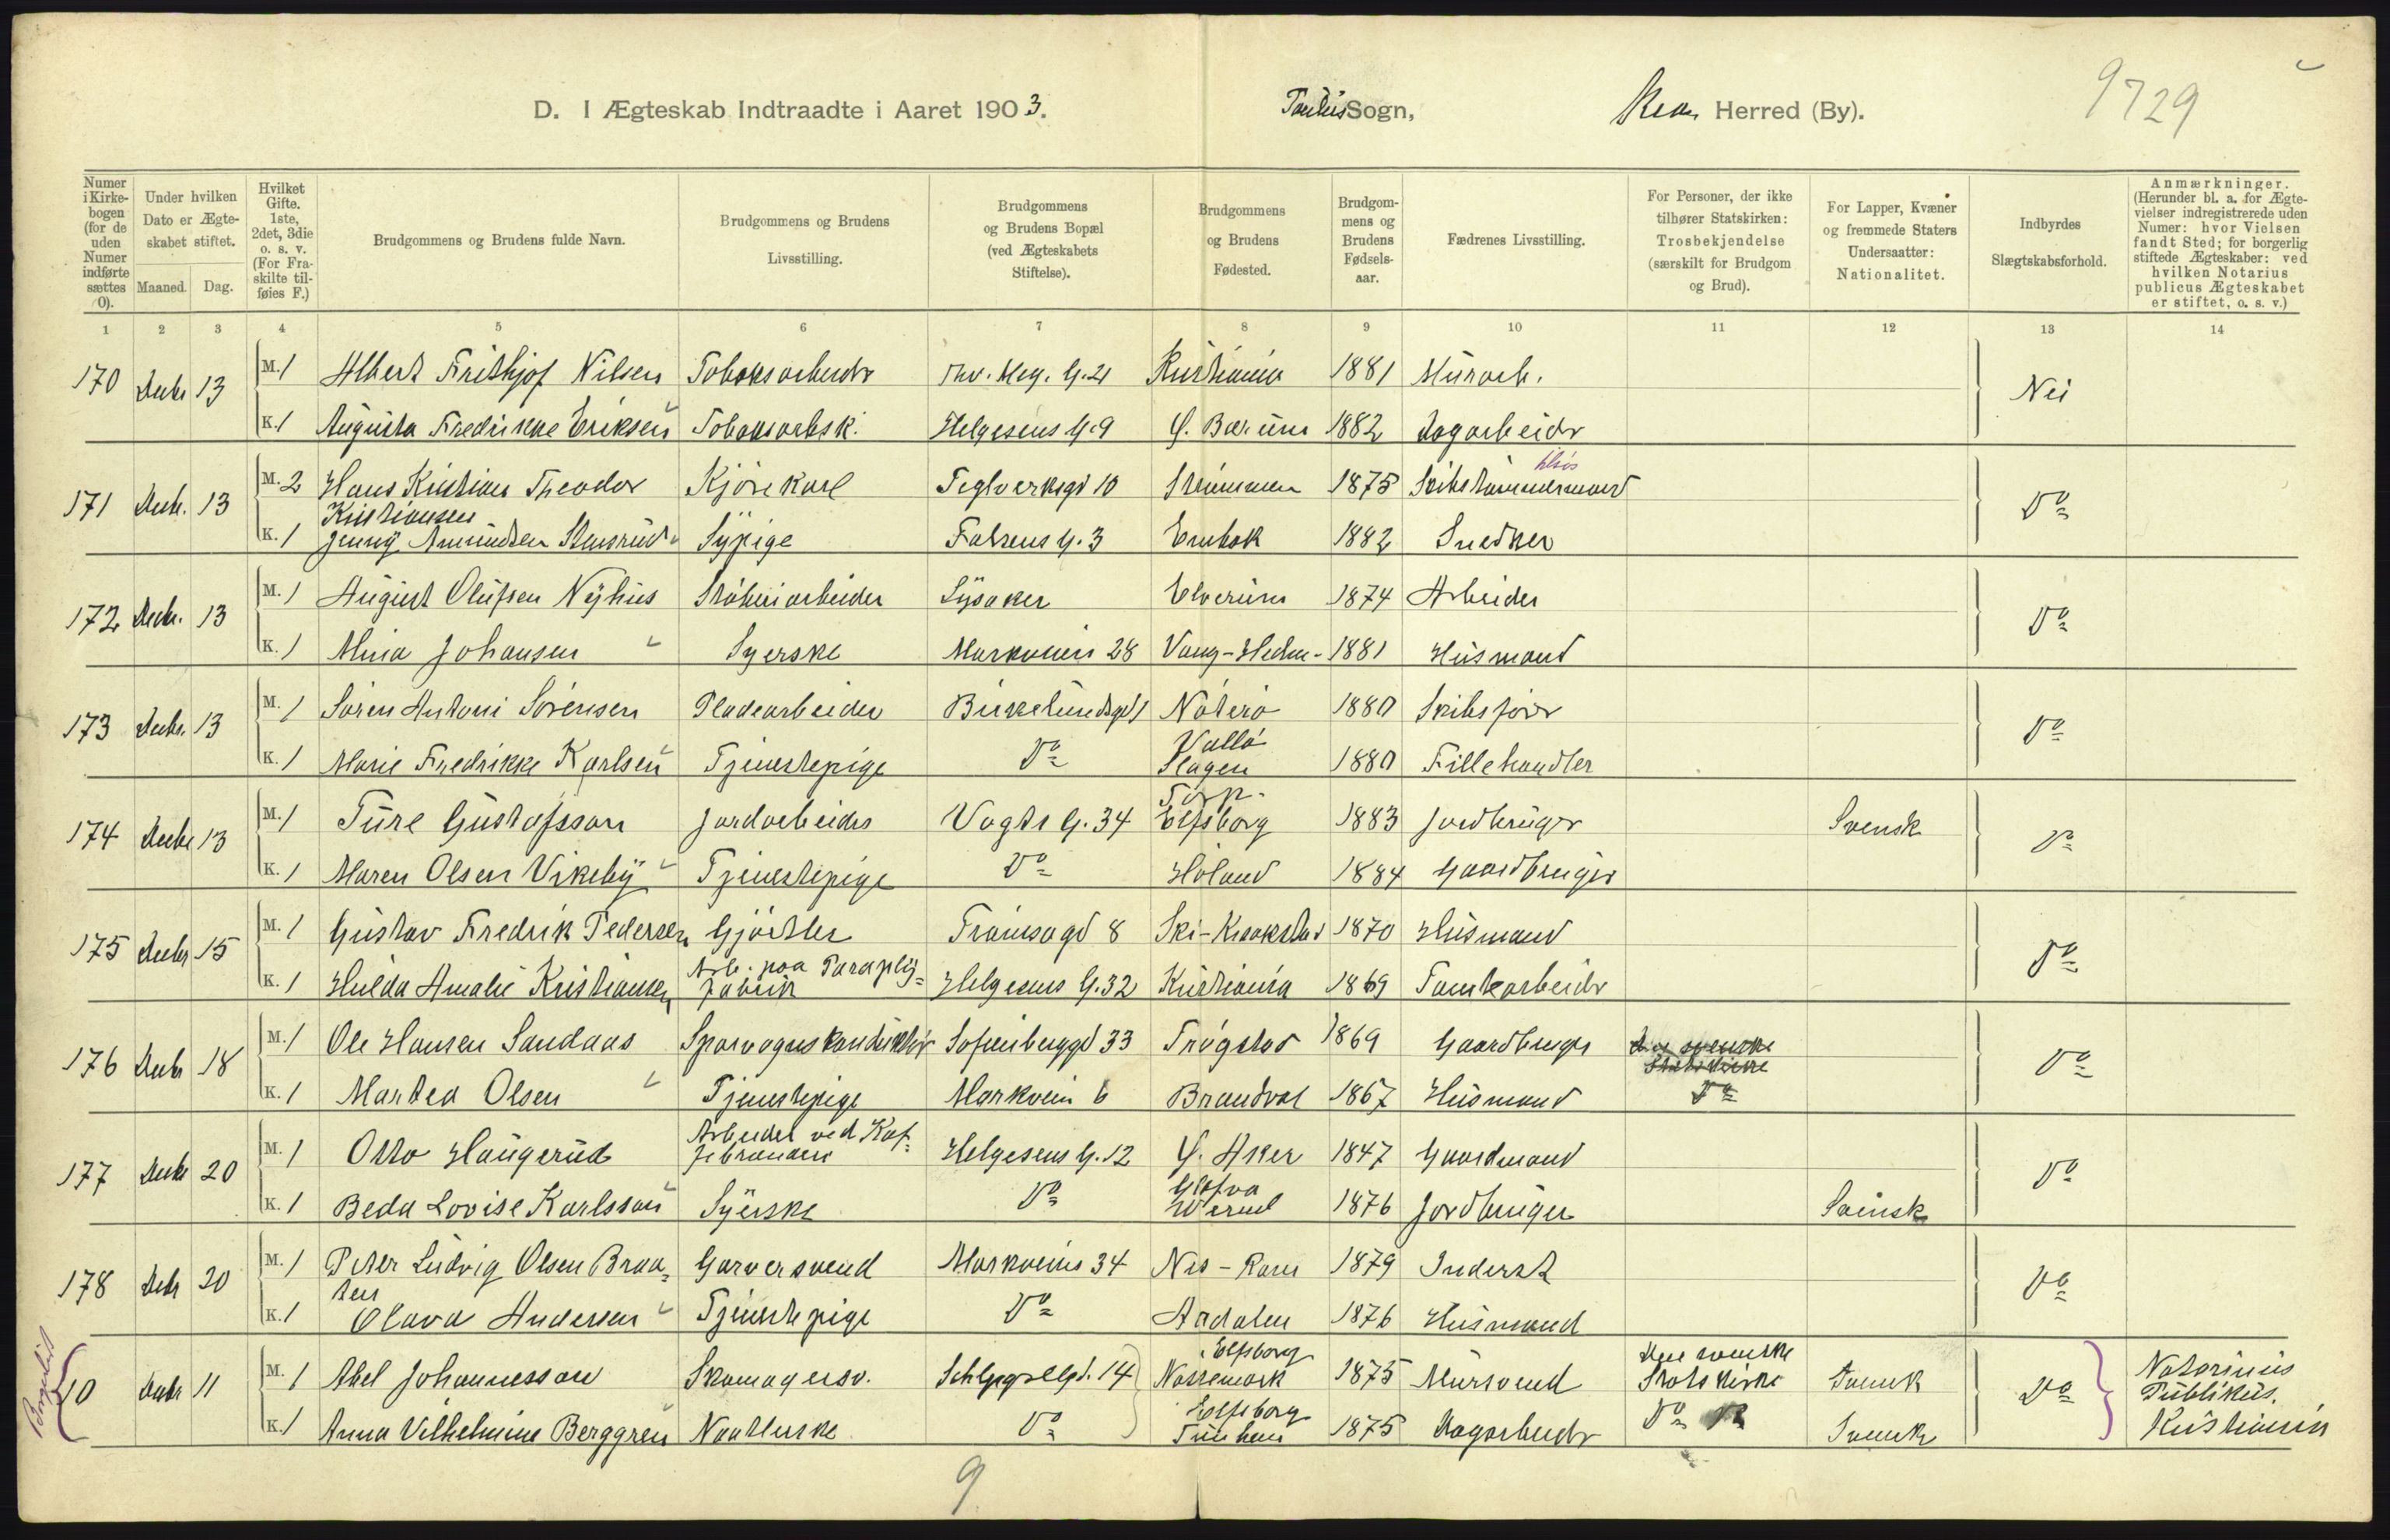 9729
D. I Ægteskab Indtraadte i Aaret 1903. Paulus Sogn, Kra. Herred (By).
Numer i Kirkebogen (for de uden Numer indførte sættes 0).
Under hvilken Dato er Ægteskabet stiftet.
Maaned. Dag.
Hvilket Gifte. 1ste, 2det, 3die o. s. v. (For Fraskilte tilføies F.)
Brudgommens og Brudens fulde Navn.
Brudgommens og Brudens Livsstilling.
Brudgommens og Brudens Bopæl (ved Ægteskabets Stiftelse).
Brudgommens og Brudens Fødested.
Brudgommens og Brudens Fødselsaar.
Fædrenes Livsstilling.
For Personer, der ikke tilhører Statskirken: Trosbekjendelse (særskilt for Brudgom og Brud).
For Lapper, Kvæner og fremmede Staters Undersaatter: Nationalitet.
Indbyrdes Slægtskabsforhold.
Anmærkninger. (Herunder bl. a. for Ægtevielser indregistrerede uden Numer: hvor Vielsen fandt Sted; for borgerlig stiftede Ægteskaber: ved hvilken Notarius publicus Ægteskabet er stiftet, o. s. v.)
1 2 3 4 5 6 7 8 9 10 11 12 13 14
170 Decbr 13 M. 1 Albert Frithjof Nilsen Tobaksarbeider Thv. Mey. G. 21 Kristiania 1881 Murarb. Nei
K. 1 Augusta Fredrikke Eriksen Tobaksarbsk. Helgesens G. 9 V. Bærum 1882 Dagarbeider
171 Decb. 13 M. 2 Hans Kristian Theodor Kristiansen Kjørekarl Teglverksgd 10 Strømmen 1875 Skibstømmermand Do
K. 1 Jenny Amundsen Stensrud Sypige Falsens G. 3 Enebak 1882 Snedker
172 Decbr. 13 M. 1 August Olufsen Nyhus Støberiarbeider Lysaker Elverum 1874 Arbeider Do
K. 1 Mina Johansen Syerske Markveien 28 Vang-Hedm- 1881 Husmand
173 Decbr. 13 M. 1 Søren Antoni Sørensen Pladearbeider Birkelundsgd 1 Nøterø 1880 Skibsfører Do
K. 1 Marie Fredrikke Karlsen Tjenestepige Do Vallø Slagen 1880 Fillehandler
174 Decbr 13 M. 1 Ture Gustafsson Jordarbeider Vogts G. 34 Torp- Elfsborg 1883 Jordbruger Svensk Do
K. 1 Maren Olsen Vikeby Tjenestepige Do Høland 1884 Gaardbruger
175 Decbr 15 M. 1 Gustav Fredrik Pedersen Gjørtler Tromsøgd 8 Ski-Kraakstad 1870 Husmand Do
K. 1 Hulda Amalie Kristiansen Arb. paa Paraplyfabrik Helgesens G. 32 Kristiania 1869 Tomtearbeider
176 Decbr 18 M. 1 Ole Hansen Sandaas Sporvognskonduktør Sofienberggd 33 Trøgstad 1869 Gaardbruger Den svenske Statskirke Do
K. 1 Martea Olsen Tjenestepige Markvein 6 Brandval 1867 Husmand Do
177 Decbr 20 M. 1 Otto Haugerud Arbeider ved Kaffebrænderi Helgesens G. 12 V. Aker 1847 Gaardmand Do
K. 1 Beda Lovise Karlsson Syerske Do Glafva Werml 1876 Jordbruger Svensk
178 Decbr 20 M. 1 Peter Ludvig Olsen Braaten Garversvend Markveien 34 Nes-Rom 1879 Inderst Do
K. 1 Olava Andersen Tjenestepige Do Aadalen 1876 Husmand
Borgerlid 10 Decbr 11 M. 1 Abel Johannesson Skomagersv. 14 Elfsborg Nossemark 1875 Mursvend Den svenske Statskirke Svensk Do Notarius Publikus. Kristiania
K. 1 Anna Vilhelmine Berggren Naatlerske Do Elfsborg 1875 Dagarbeider Do Svensk
9